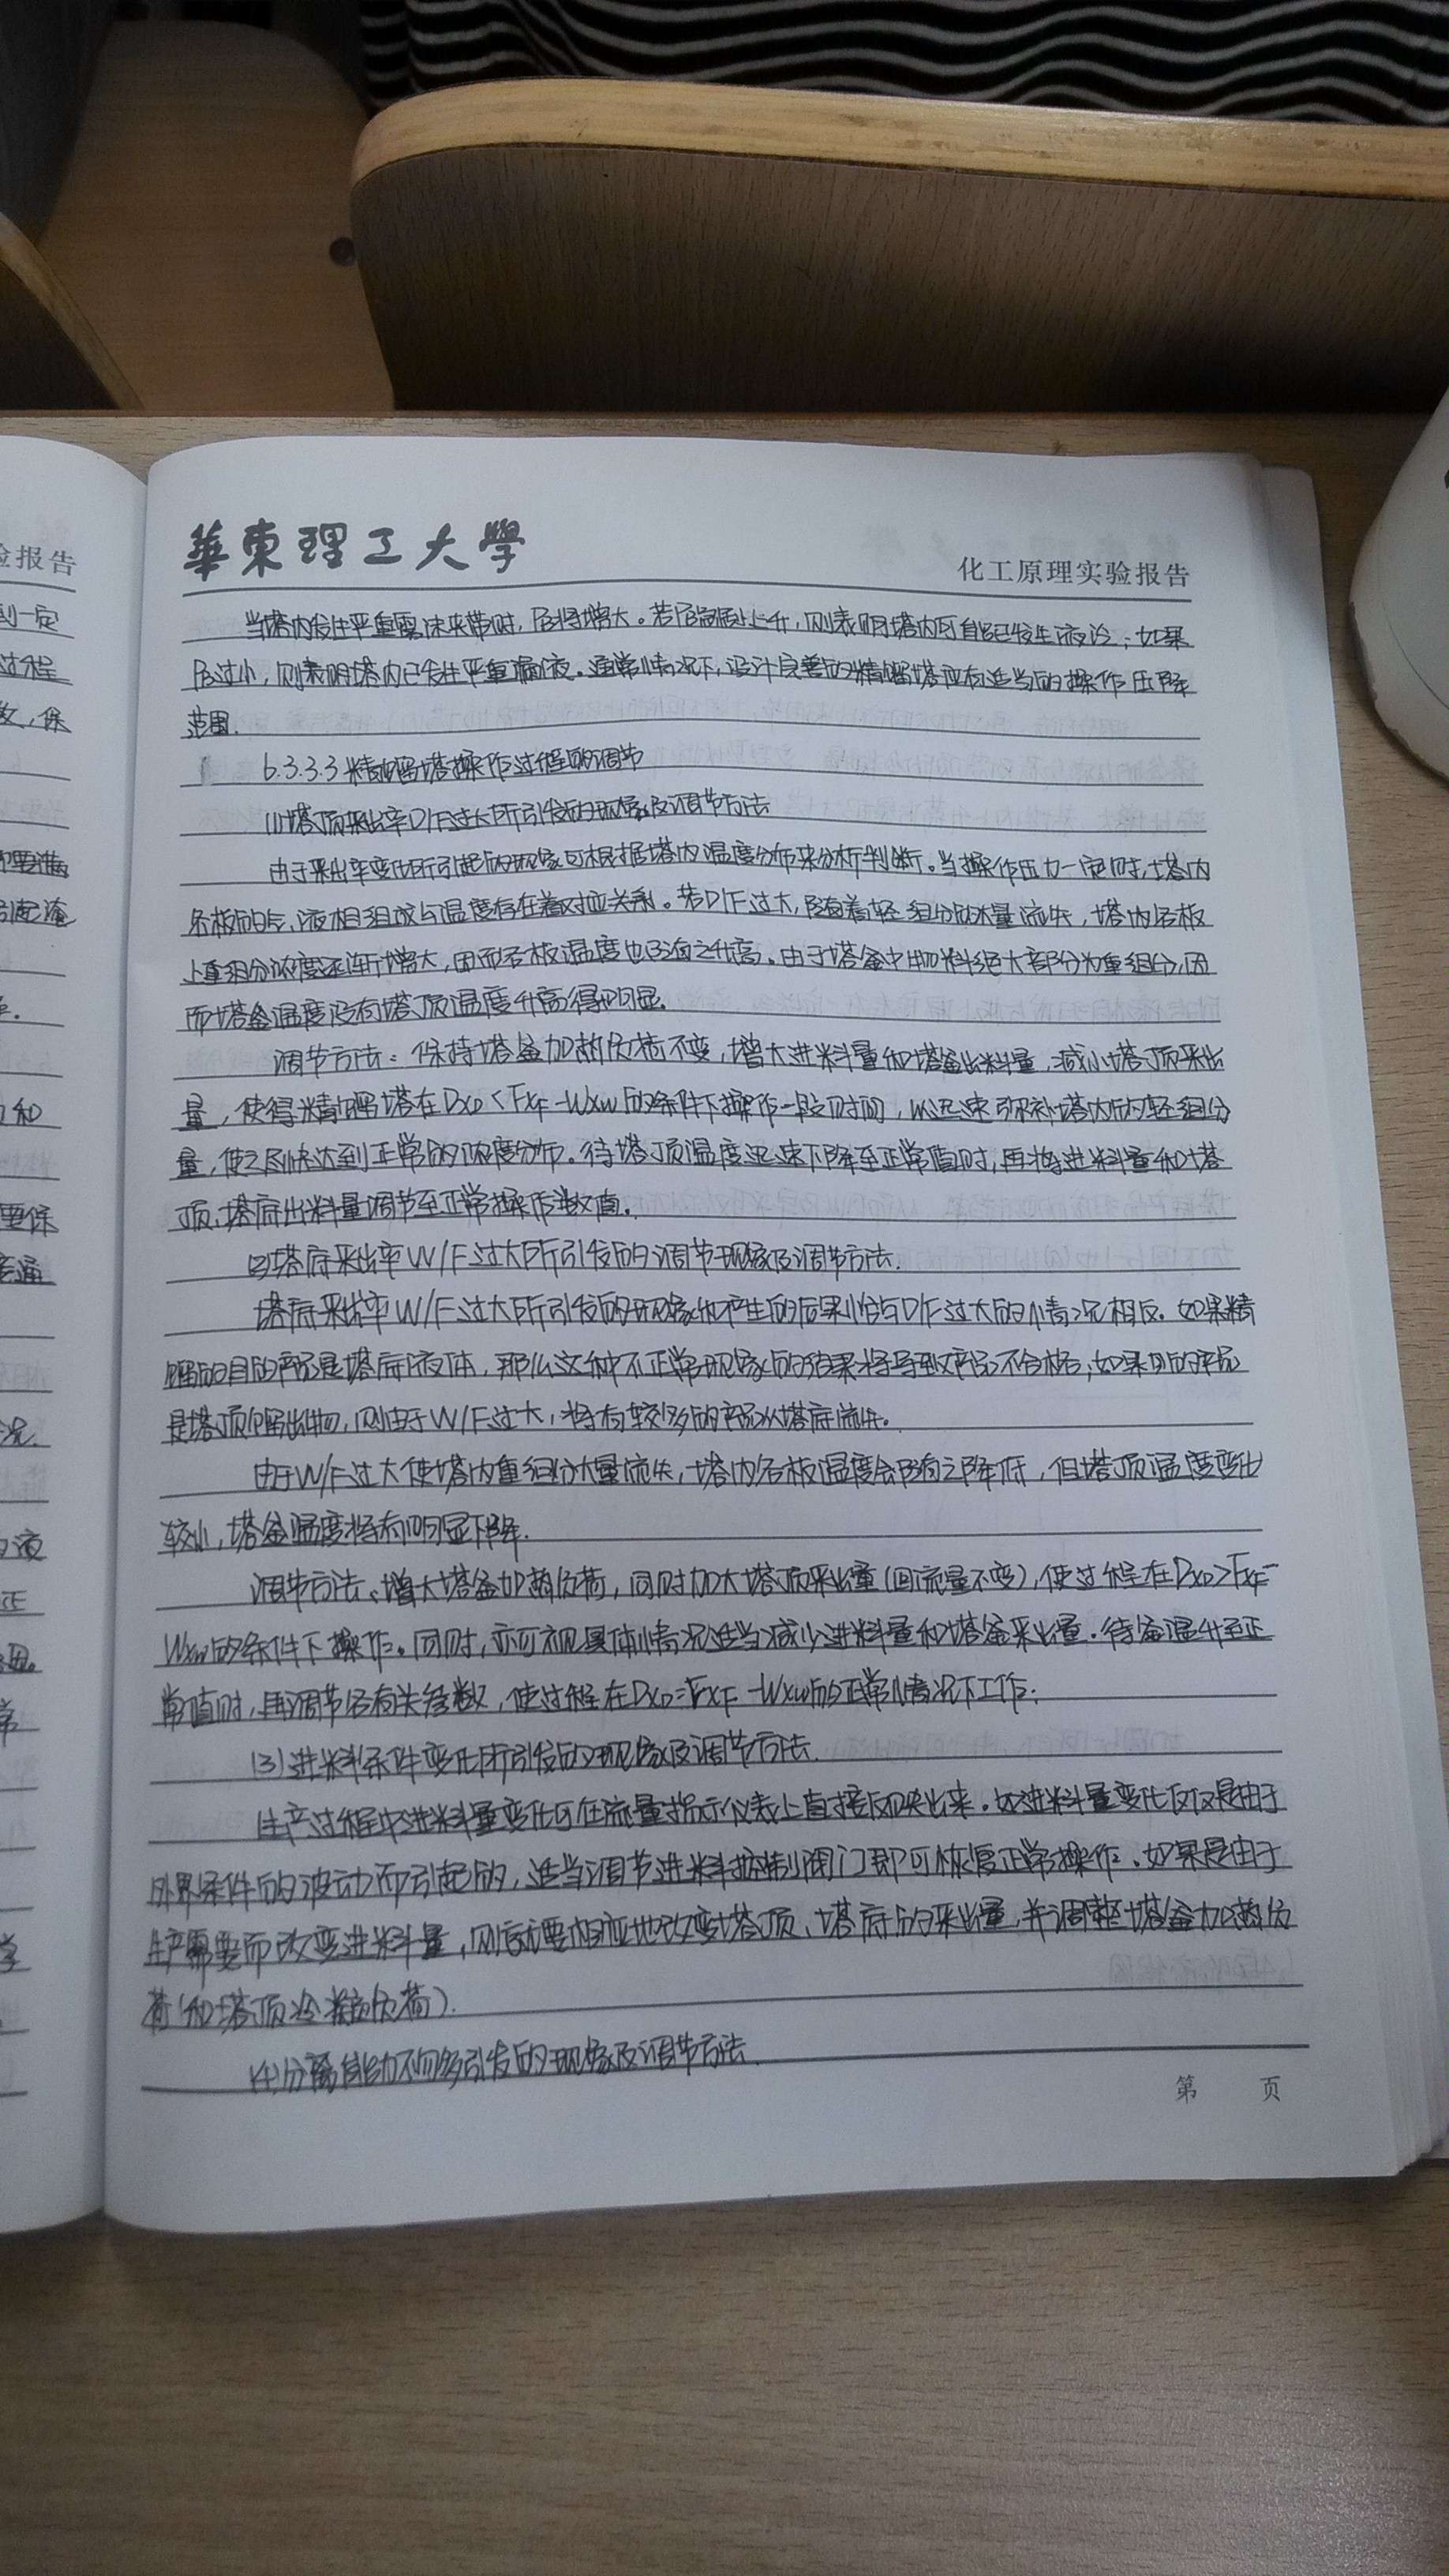 華東理工大學
化工原理实验报告
当塔内发生严重雾沫夹带时，压将增大。若压急剧上升，则表明塔内可能已发生液泛；如果
压过小，则表明塔内已发生严重漏液。通常情况下，设计完善的精馏塔应有适当的操作压降
范围.
6.3.3.3 精馏塔操作过程的调节
(1)塔顶采出率D/F过大所引发的现象及调节方法
由于采出率变化所引起的现象可根据塔内温度分布来分析判断。当操作压力一定时，塔内
各板的气、液相组成与温度存在着对应关系。若D/F过大，随着轻组分的大量流失，塔内各板
上重组分浓度逐渐增大，因而各板温度也随之升高。由于塔釜中物料绝大部分为重组分，因
而塔釜温度没有塔顶温度升高得明显.
调节方法：保持塔釜加热负荷不变，增大进料量和塔釜出料量，减小塔顶采出
量，使得精馏塔在DxD<FxF-WxW的条件下操作一段时间，以迅速弥补塔内的轻组分
量，使之尽快达到正常的浓度分布。待塔顶温度迅速下降至正常值时，再将进料量和塔
顶、塔底出料量调节至正常操作数值.
(2)塔底采出率W/F过大所引发的调节现象及调节方法.
塔底采出率W/F过大所引发的现象和产生的后果恰与D/F过大的情况相反. 如果精
馏的目的产品是塔底液体，那么这种不正常现象的结果将导致产品不合格；如果目的产品
是塔顶馏出物，则由于W/F过大，将有较多的产品从塔底流失。
由于W/F过大使塔内重组分大量流失，塔内各板温度会随之降低，但塔顶温度变化
较小，塔釜温度将有明显下降.
调节方法：增大塔釜加热负荷，同时加大塔顶采出量(回流量不变)，使过程在DxD>FxF-
WxW的条件下操作。同时，亦可视具体情况适当减少进料量和塔釜采出量. 待釜温升至正
常值时，再调节各有关参数，使过程在DxD=FxF-WxW的正常情况下工作.
(3)进料条件变化所引发的现象及调节方法.
生产过程中进料量变化可在流量指示仪表上直接反映出来. 如进料量变化仅仅是由于
外界条件的波动而引起的，适当调节进料控制阀门即可恢复正常操作. 如果是由于
生产需要而改变进料量，则需要相应地改变塔顶、塔底的采出量，并调整塔釜加热负
荷(和塔顶冷凝负荷).
(4)分离能力不够引发的现象及调节方法
第 页